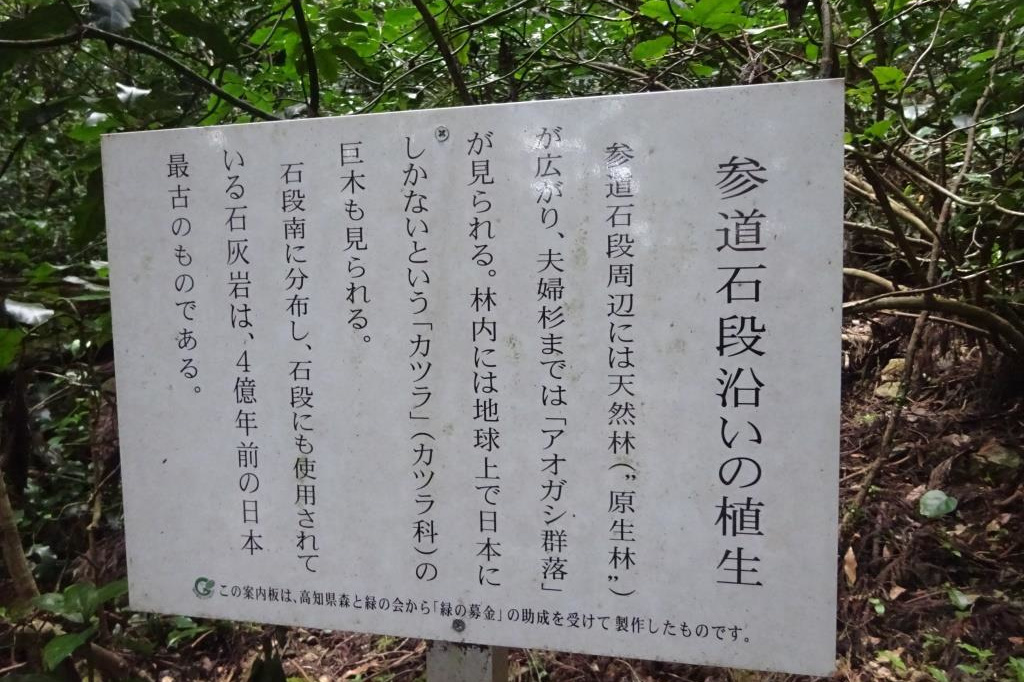 参道石段沿いの植生
参道石段周辺には天然林(”原生林”)
が広がり、夫婦杉までは「アオガシ群落」
が見られる。林内には地球上で日本に
しかないという「カツラ」(カツラ科)の
巨木も見られる。
石段南に分布し、石段にも使用されて
いる石灰岩は、4億年前の日本
最古のものである。
この案内板は、高知県森と緑の会から「緑の募金」の助成を受けて製作したものです。